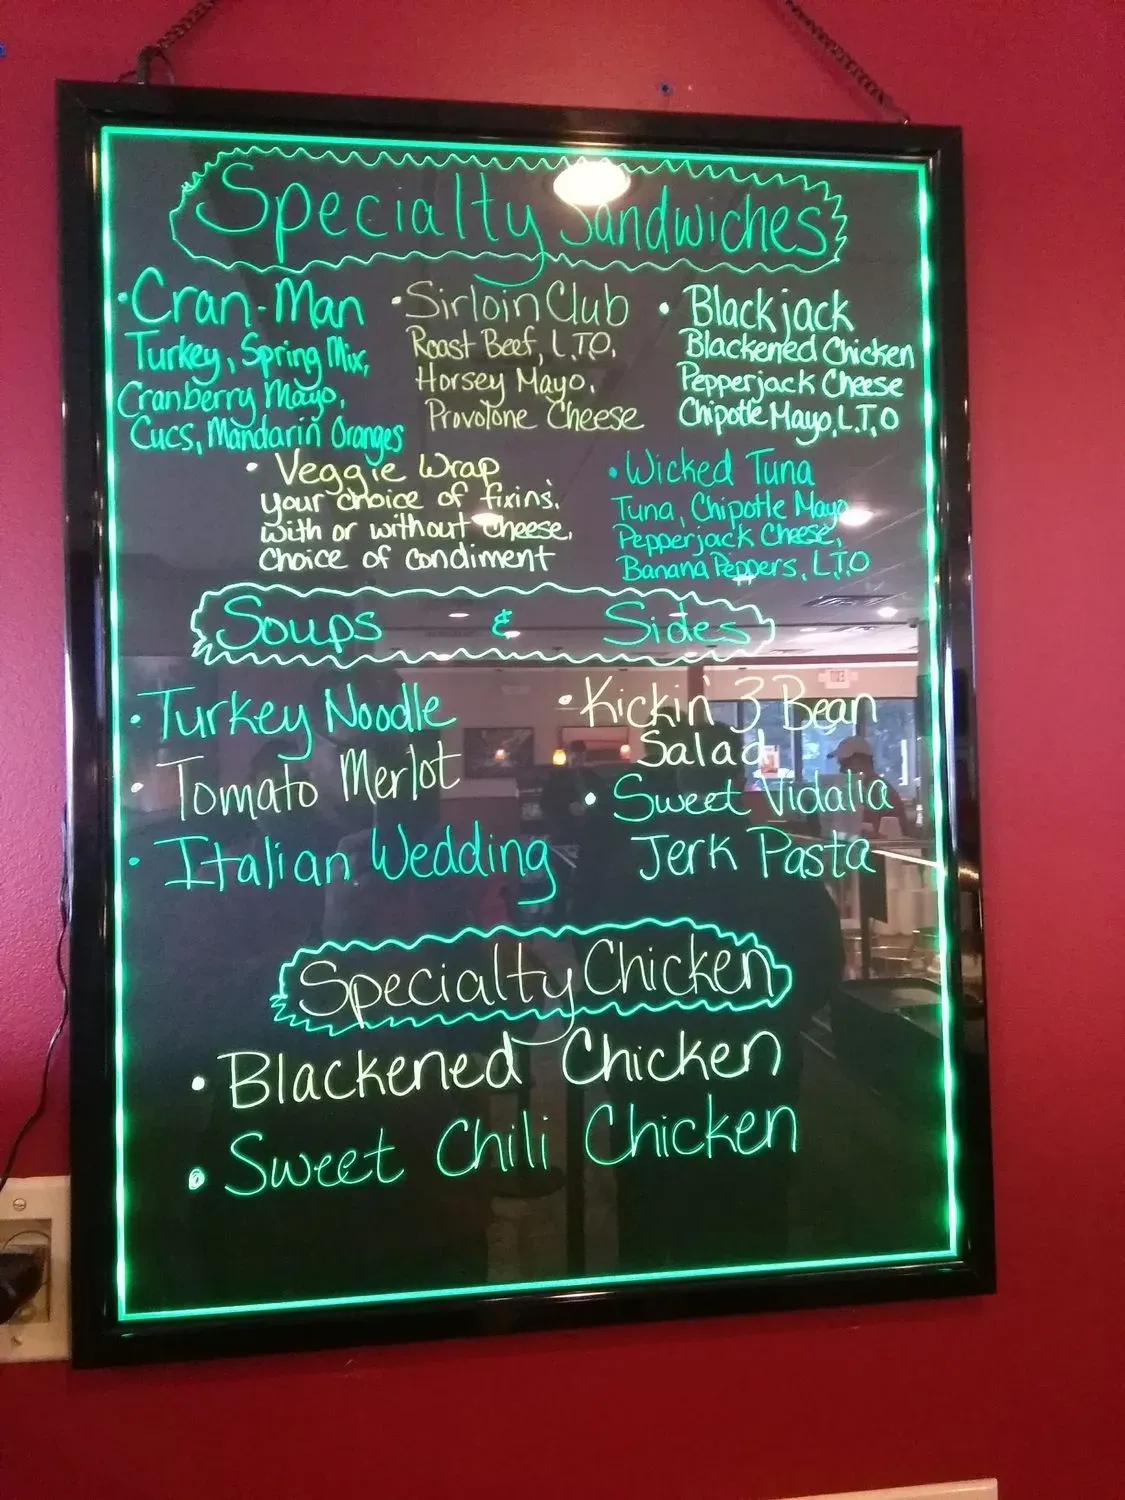 Specialty Sandwiches
• Cran-Man
Turkey, Spring Mix,
Cranberry Mayo,
Cucs, Mandarin Oranges
• Sirloin Club
Roast Beef, L.T.O.
Horsey Mayo,
Provolone Cheese
• Blackjack
Blackened Chicken
Pepperjack Cheese
Chipotle Mayo, L.T,O
• Veggie Wrap
your choice of fixins.
with or without cheese,
choice of condiment
• Wicked Tuna
Tuna, Chipotle Mayo
Pepperjack Cheese,
Banana Peppers, L.T.O
Soups & Sides
• Turkey Noodle
• Tomato Merlot
• Italian Wedding
• Kickin' 3 Bean
Salad
• Sweet Vidalia
Jerk Pasta
Specialty Chicken
• Blackened Chicken
• Sweet Chili Chicken